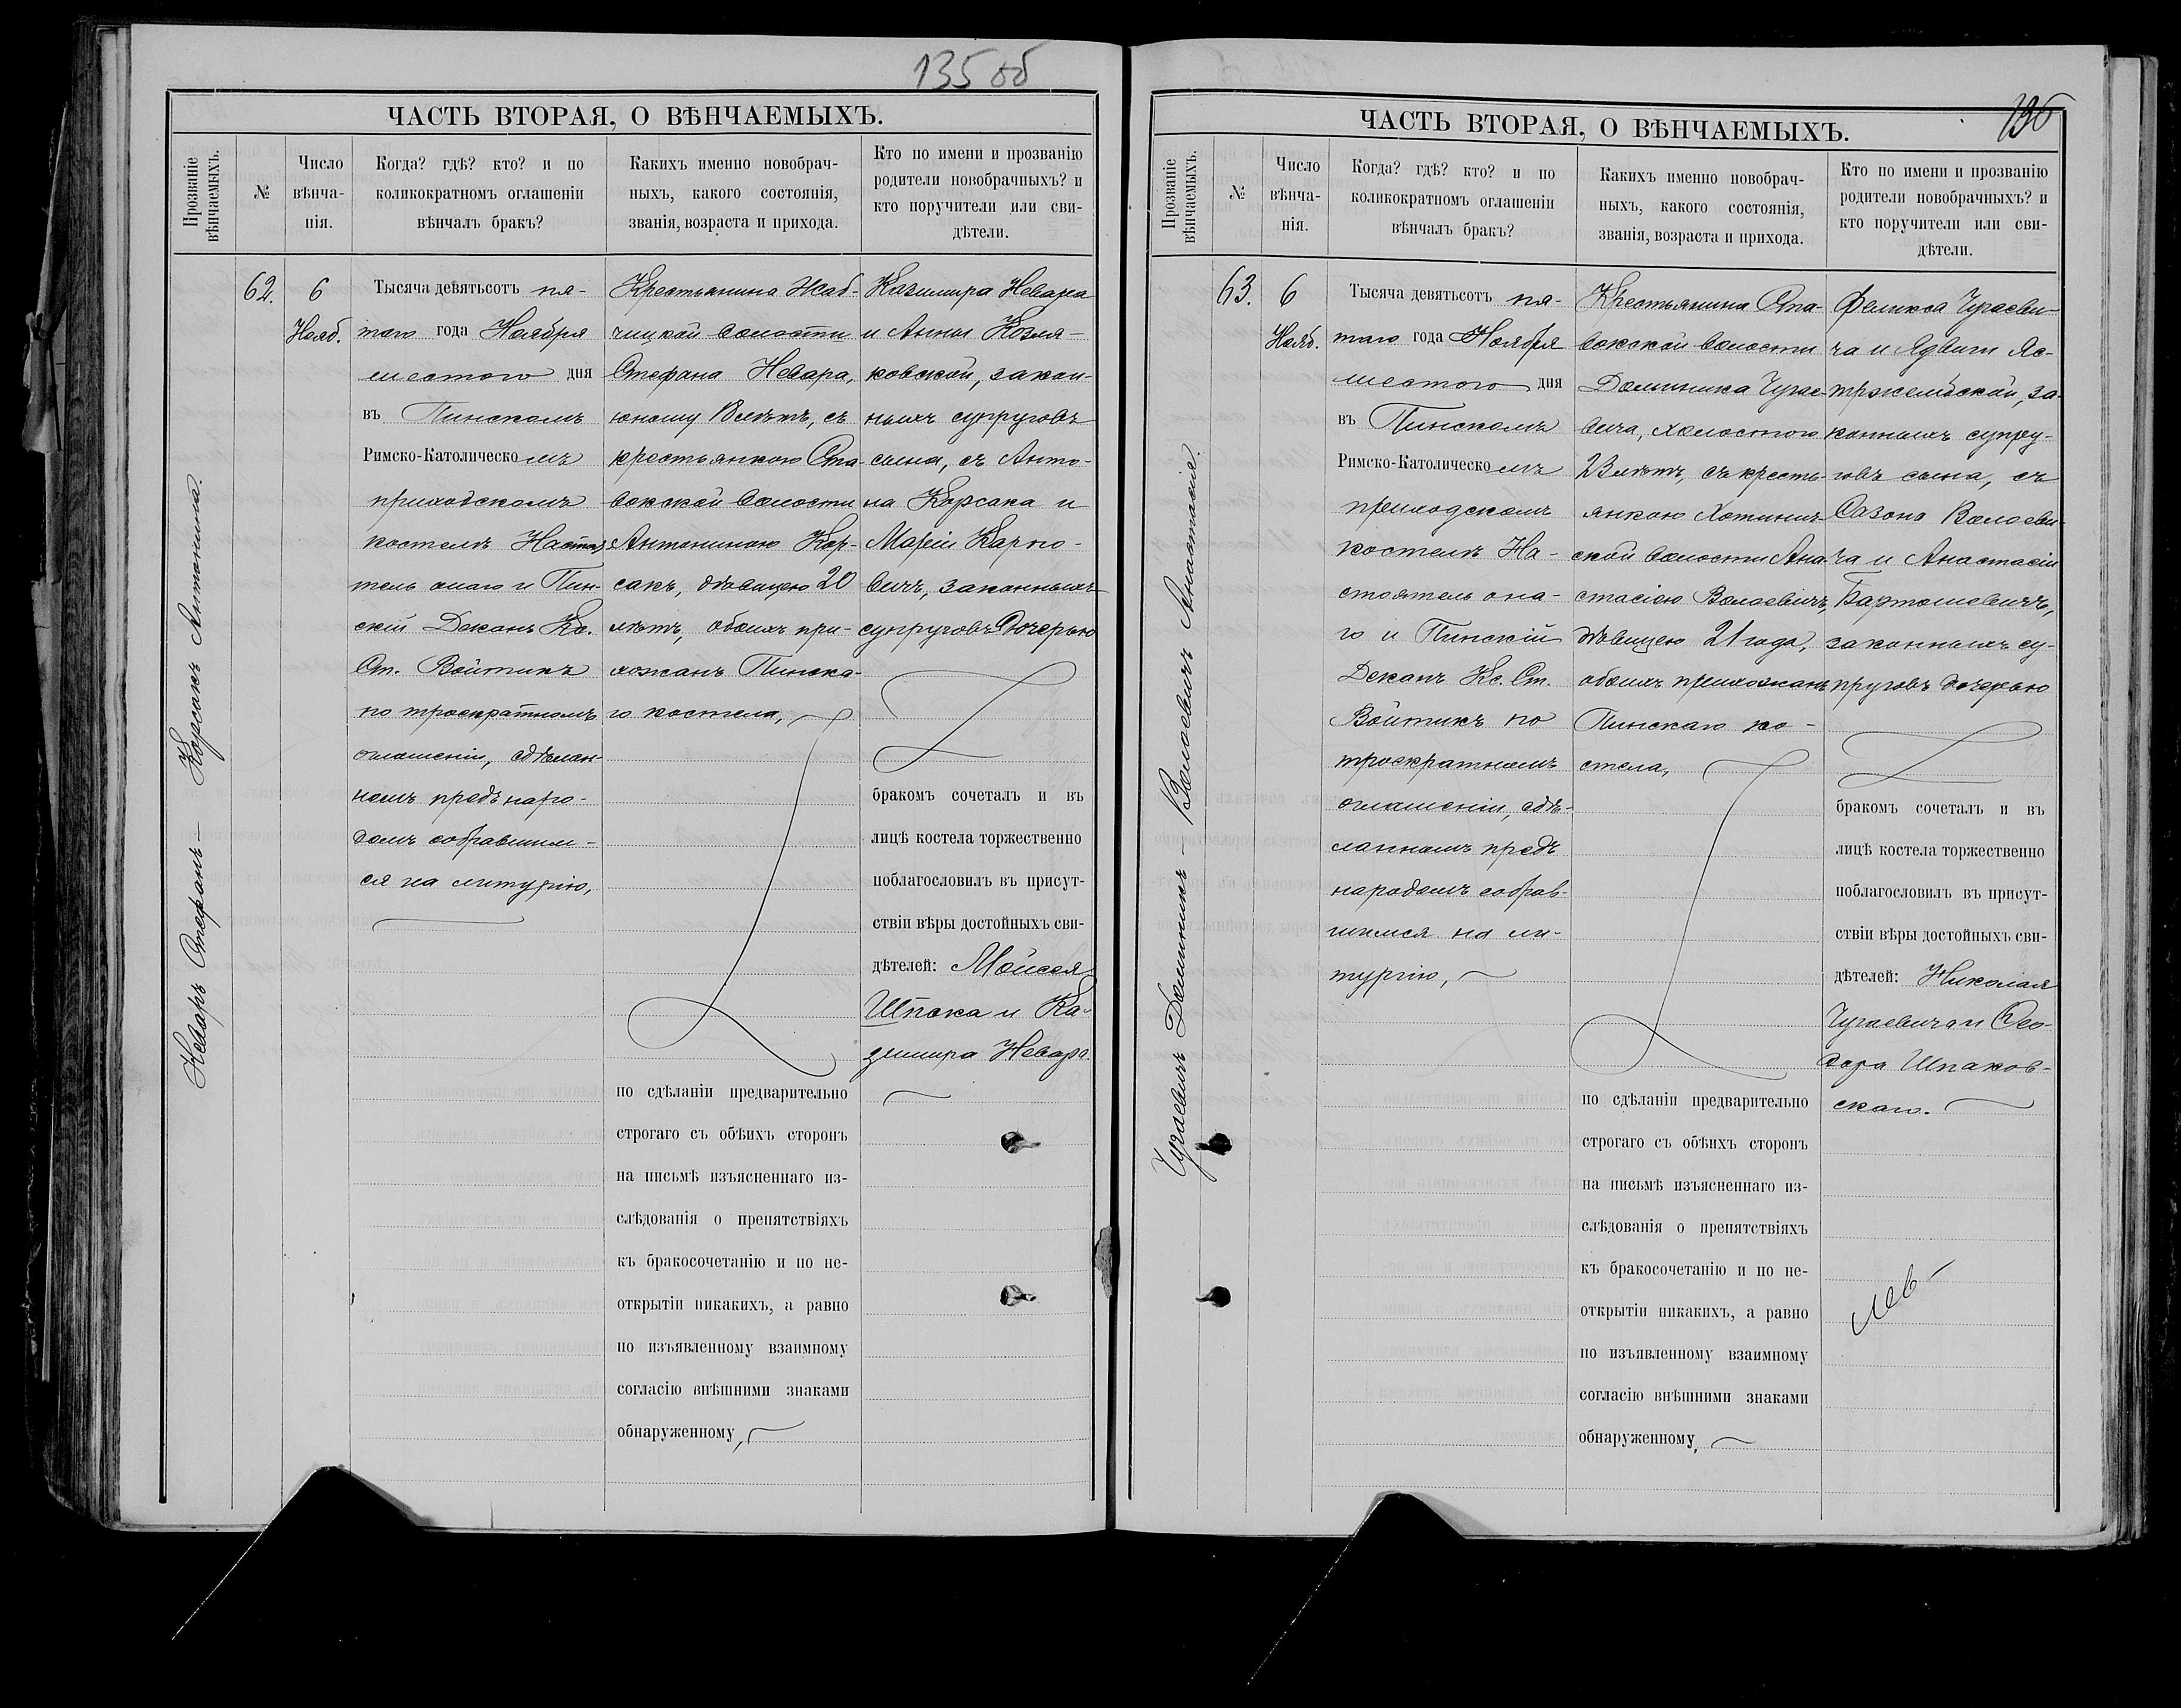 135 об
ЧАСТЬ ВТОРАЯ, О ВѢНЧАЕМЫХЪ.
Прозваніе вѣнчаемыхъ.
№
Число
вѣнча-
нія.
Когда? гдѣ? кто? и по
коликократномъ оглашеніи
вѣнчалъ бракъ?
Какихъ именно новобрач-
ныхъ, какого состоянія,
званія, возраста и прихода.
Кто по имени и прозванію
родители новобрачныхъ? и
кто поручители или сви-
дѣтели.
Неваръ Стефанъ — Корсакъ Антонина.
62.
6
Нояб.
Тысяча девятьсотъ пя-
таго года Ноября
шестого дня
въ Пинскомъ
Римско-Католическомъ
приходскомъ
костелѣ Настоя
тель онаго и Пин-
скій Деканъ Кс.
Ст. Войтикъ
по троекратномъ
оглашеніи, сдѣлан-
номъ предъ наро-
домъ собравшим-
ся на литургію,
Крестьянина Жаб-
чицкой волости
Стефана Невара,
юношу 18 лѣтъ, съ
крестьянкою Ста-
вокской волости
Антониною Кор-
сакъ, дѣвицею 20
лѣтъ, обоихъ при-
хожанъ Пинска-
го костела,
по сдѣланіи предварительно
строгаго съ обѣихъ сторонъ
на письмѣ изъясненнаго из-
слѣдованія о препятствіяхъ
къ бракосочетанію и по не-
открытіи никакихъ, а равно
по изъявленному взаимному
согласію внѣшними знаками
обнаруженному,
Казимира Невара
и Анны Козля-
ковской, закон-
ныхъ супруговъ
сына, съ Анто-
на Корсака и
Маріи Карпо-
вичъ, законныхъ
супруговъ дочерью
бракомъ сочеталъ и въ
лицѣ костела торжественно
поблагословилъ въ присут-
ствіи вѣры достойныхъ сви-
дѣтелей: Мойсея
Шпака и Ка-
зимира Невара.
136
ЧАСТЬ ВТОРАЯ, О ВѢНЧАЕМЫХЪ.
Прозваніе вѣнчаемыхъ.
№
Число
вѣнча-
нія.
Когда? гдѣ? кто? и по
коликократномъ оглашеніи
вѣнчалъ бракъ?
Какихъ именно новобрач-
ныхъ, какого состоянія,
званія, возраста и прихода.
Кто по имени и прозванію
родители новобрачныхъ? и
кто поручители или сви-
дѣтели.
Чугаевичъ Доминикъ — Волоевичъ Анастасія.
63.
6
Нояб.
Тысяча девятьсотъ пя-
таго года Ноября
шестого дня
въ Пинскомъ
Римско-Католическомъ
приходскомъ
костелѣ На-
стоятель она-
го и Пинскій
Деканъ Кс. Ст.
Войтикъ по
троекратномъ
оглашеніи, сдѣ-
ланномъ предъ
народомъ собрав-
шимся на ли-
тургію,
Крестьянина Ста-
вокской волости
Доминика Чугае-
вича, холостого
23 лѣтъ, съ кресть-
янкою Хотинич-
ской волости Ана-
стасіею Волоевичъ,
дѣвицею 21 года,
обоихъ прихожанъ
Пинскаго ко-
стела,
по сдѣланіи предварительно
строгаго съ обѣихъ сторонъ
на письмѣ изъясненнаго из-
слѣдованія о препятствіяхъ
къ бракосочетанію и по не-
открытіи никакихъ, а равно
по изъявленному взаимному
согласію внѣшними знаками
обнаруженному,
Феликса Чугаеви-
ча и Ядвиги Яс-
тржембской, за-
конныхъ супру-
говъ сына, съ
Сазона Волоеви-
ча и Анастасіи
Бартошевичъ,
законныхъ су-
пруговъ дочерью
бракомъ сочеталъ и въ
лицѣ костела торжественно
поблагословилъ въ присут-
ствіи вѣры достойныхъ сви-
дѣтелей: Николая
Чугаевича и Ѳео-
дора Шпаков-
скаго.